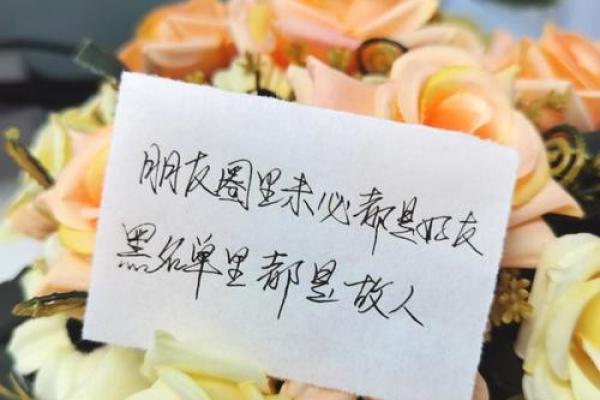 朋友圈里未必都是好友
黑名单里都是故人